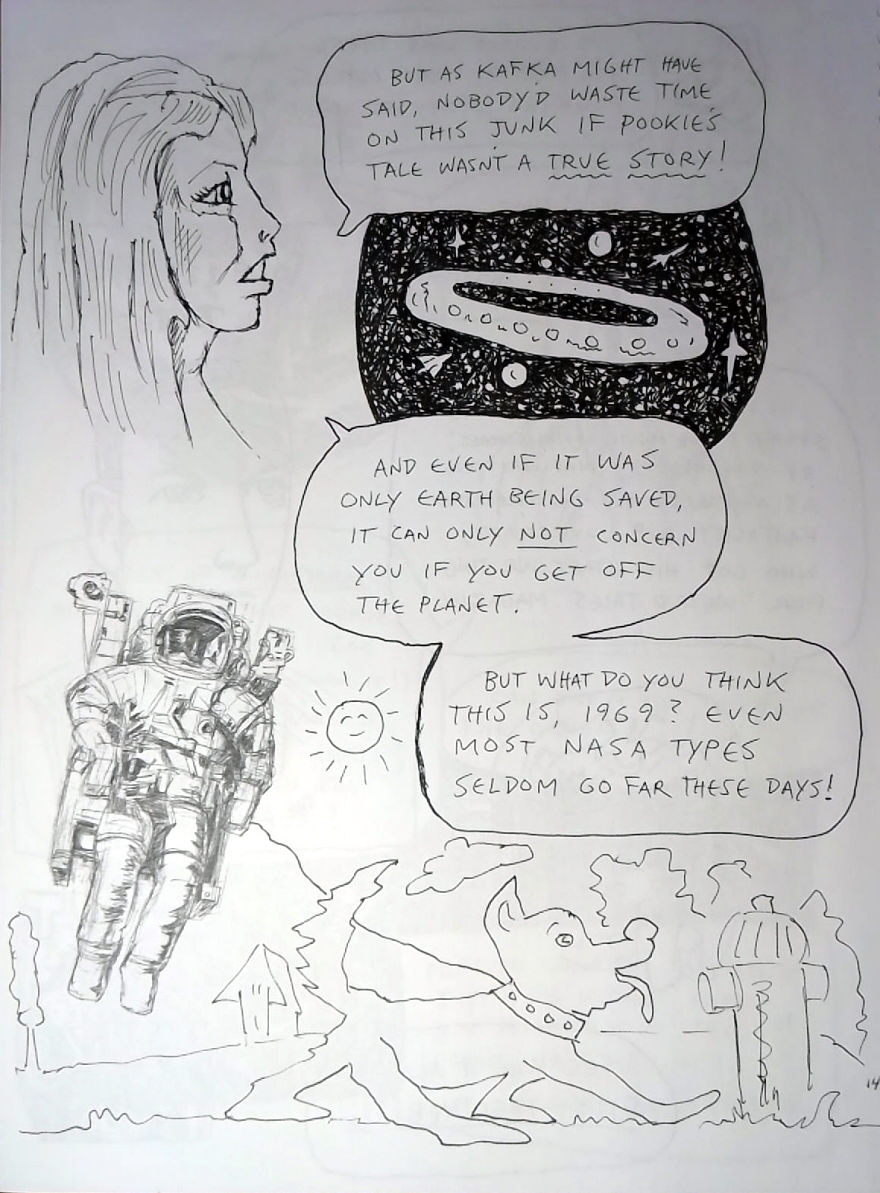 BUT AS KAFKA MIGHT HAVE
SAID, NOBODY'D WASTE TIME
ON THIS JUNK IF POOKIE'S
TALE WASN'T A TRUE STORY!
AND EVEN IF IT WAS
ONLY EARTH BEING SAVED,
IT CAN ONLY NOT CONCERN
YOU IF YOU GET OFF
THE PLANET.
BUT WHAT DO YOU THINK
THIS IS, 1969? EVEN
MOST NASA TYPES
SELDOM GO FAR THESE DAYS!
14